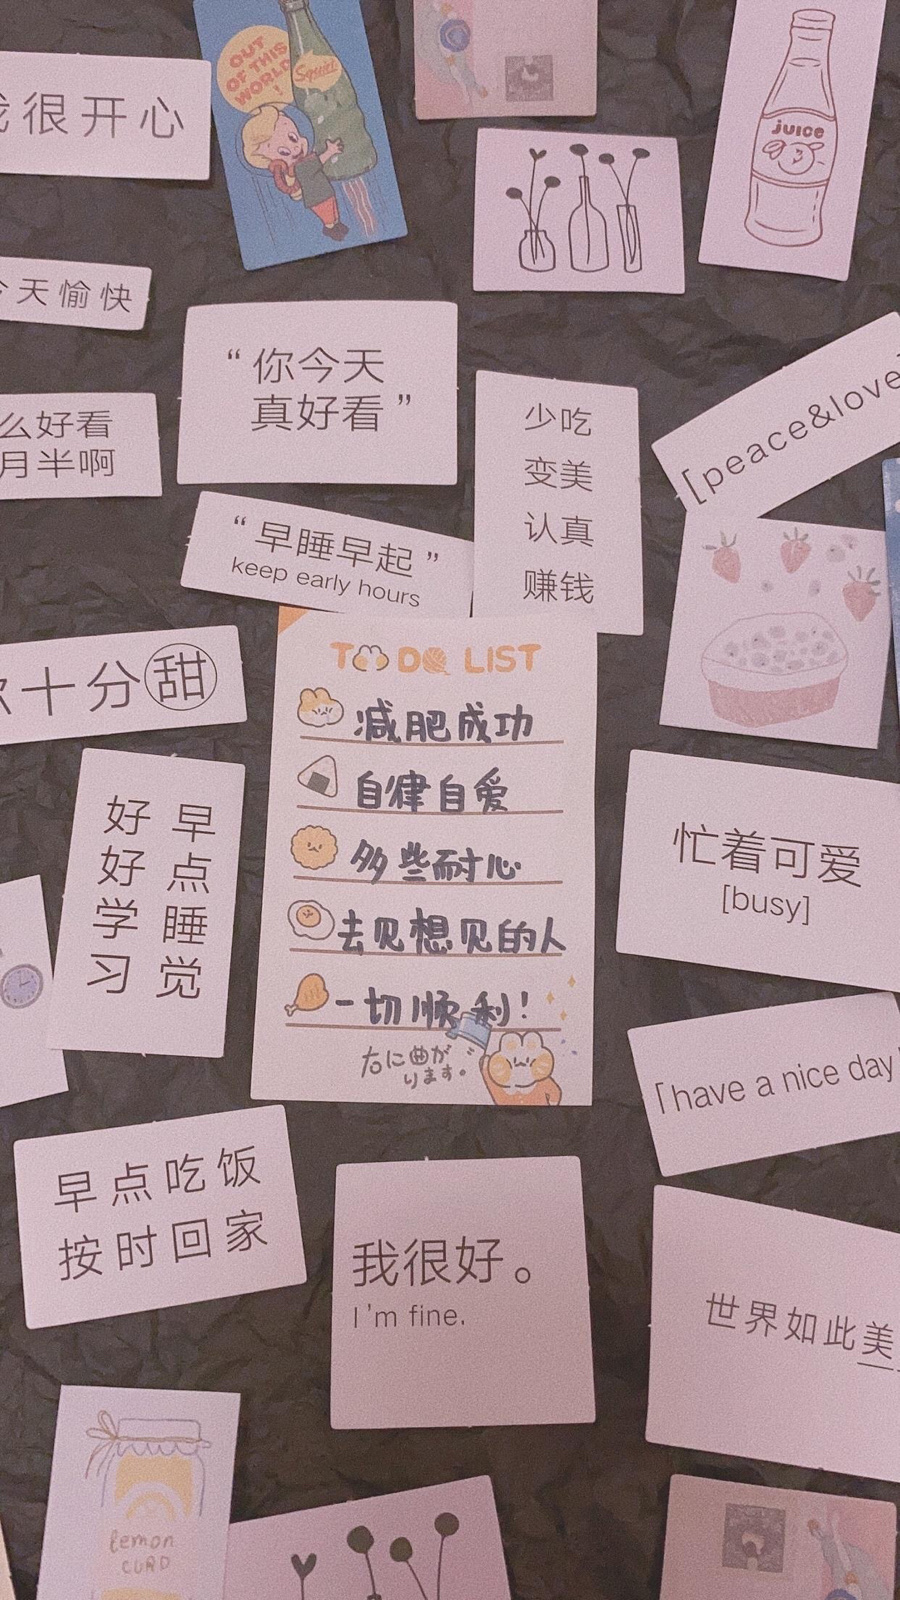 很开心
OUT
OF THIS
WORLD
!
Squirt
JUICE
天愉快
“你今天
真好看”
么好看
月半啊
少吃
变美
认真
赚钱
[peace&love]
“早睡早起”
keep early hours
十分甜
TO DO LIST
减肥成功
自律自爱
多些耐心
去见想见的人
一切顺利!
右に曲が
ります。
早点睡觉
好好学习
忙着可爱
[busy]
「have a nice day
早点吃饭
按时回家
我很好。
I'm fine.
世界如此美
lemon
CURD